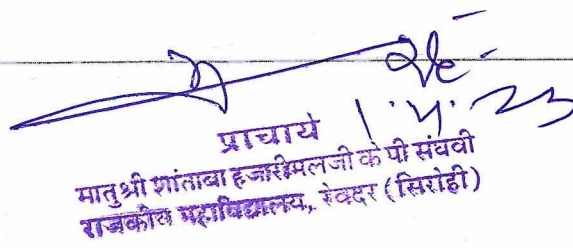 1.4.23
प्राचार्य
मातुश्री शांताबा हजारीमलजी के पी संघवी
राजकीय महाविद्यालय, रेवदर (सिरोही)